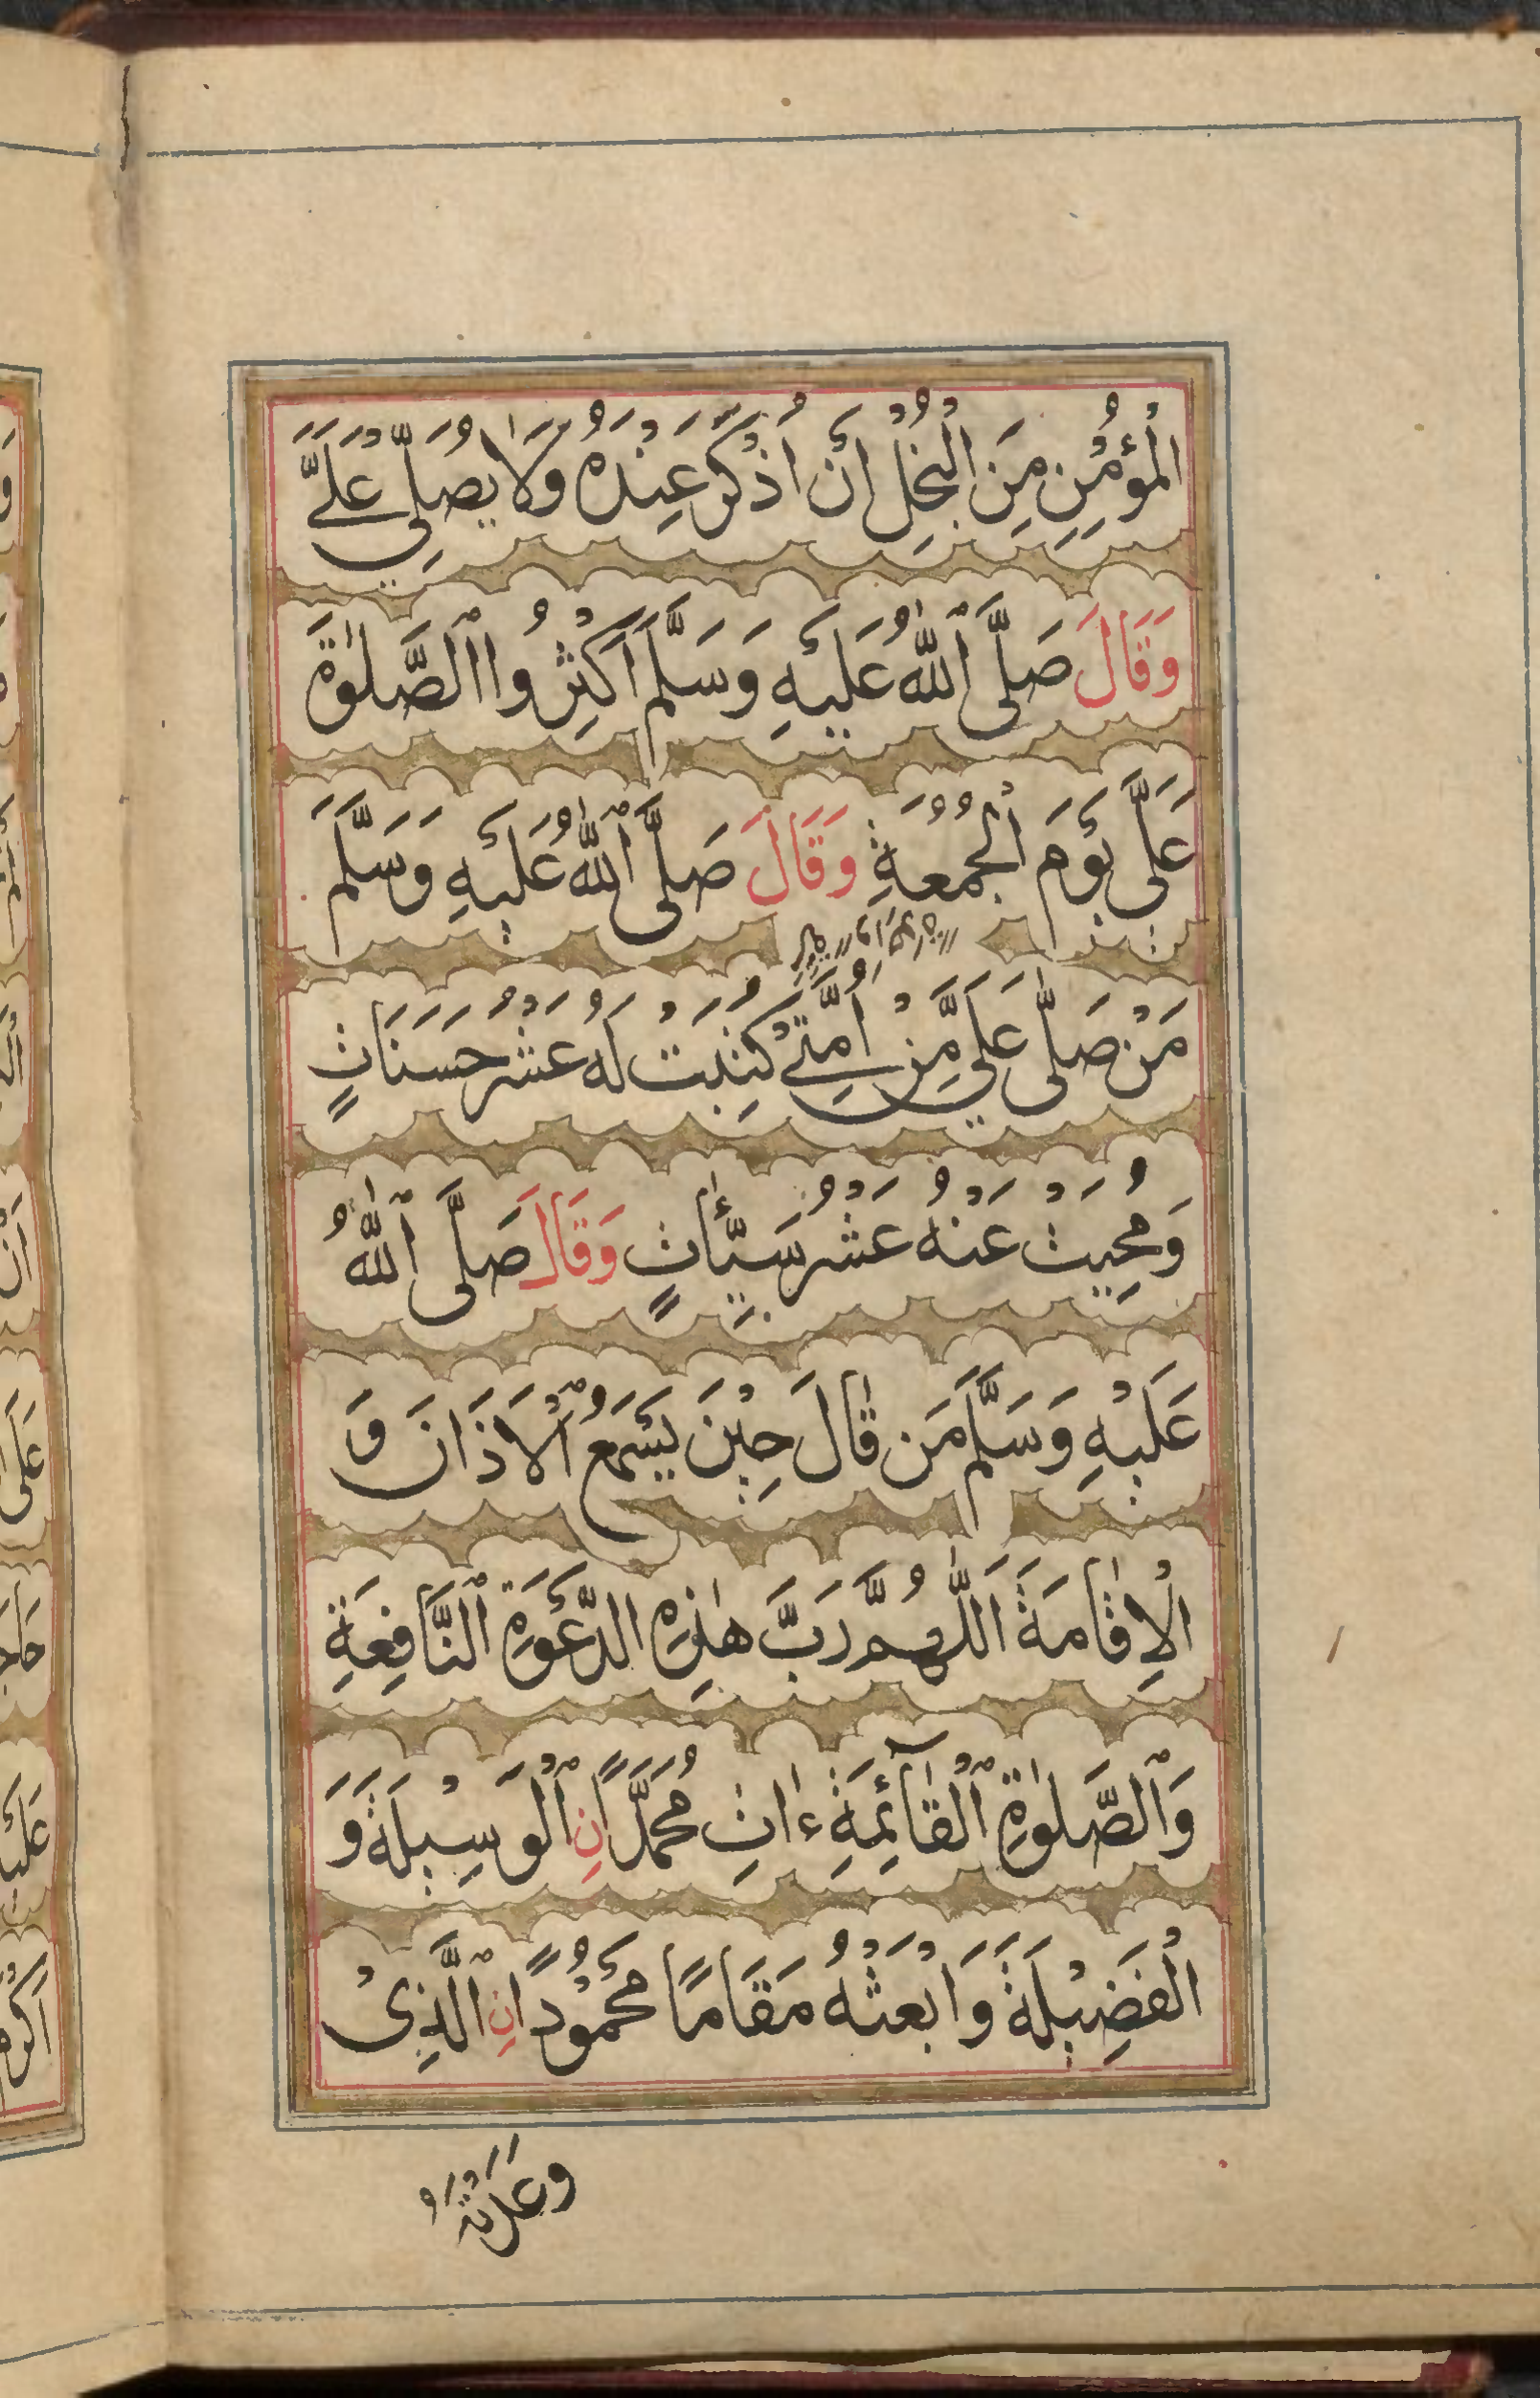 الْمُؤْمِنِ مِنَ الْبُخْلِ أَنْ أُذْكَرَ عِنْدَهُ وَلَا يُصَلِّي عَلَيَّ
وَقَالَ صَلَّى ٱللّٰهُ عَلَيْهِ وَسَلَّمَ أَكْثِرُوا ٱلصَّلٰوةَ
عَلَىَّ يَوْمَ الْجُمُعَةِ وَقَالَ صَلَّى ٱللّٰهُ عَلَيْهِ وَسَلَّمَ
مَنْ صَلّٰى عَلَيَّ مِنْ أُمَّتِي كُتِبَتْ لَهُ عَشْرُ حَسَنَاتٍ
وَمُحِيَتْ عَنْهُ عَشْرُ سَيِّئٰاتٍ وَقَالَ صَلَّى ٱللّٰهُ
عَلَيْهِ وَسَلَّمَ مَن قٰالَ حِيْنَ يَسْمَعُ ٱلْاَذَانَ وَ
الْاِقٰامَةَ اَللّٰهُمَّ رَبَّ هٰذِهِ الدَّعْوَةِ ٱلنَّافِعَةِ
وَٱلصَّلٰوةِ ٱلْقٰآئِمَةِ ءَاتِ مُحَمَّدًا نِ ٱلْوَسِيْلَةَ وَ
الْفَضِيْلَةَ وَابْعَثْهُ مَقَامًا مَحْمُوْدًا نِ ٱلَّذِىْ
وَعَدْتَهُ